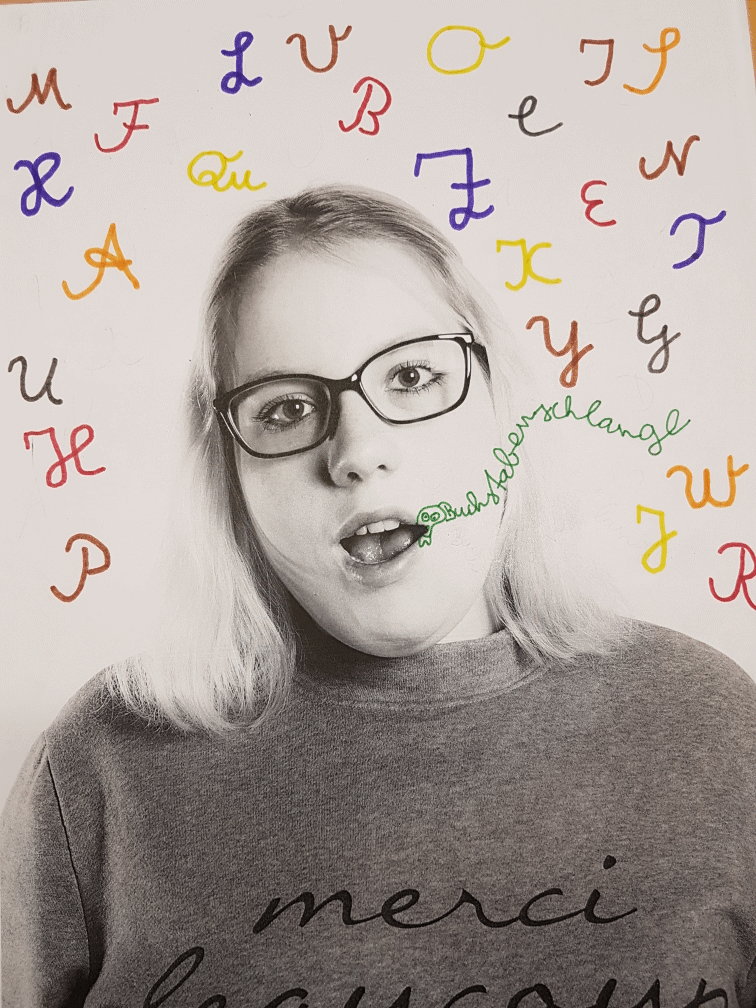 L V O I S
M F B C
X Qu Z E N
A K T
Y G
U
H
Buchstabenschlange
W
P J R
merci
beaucoup